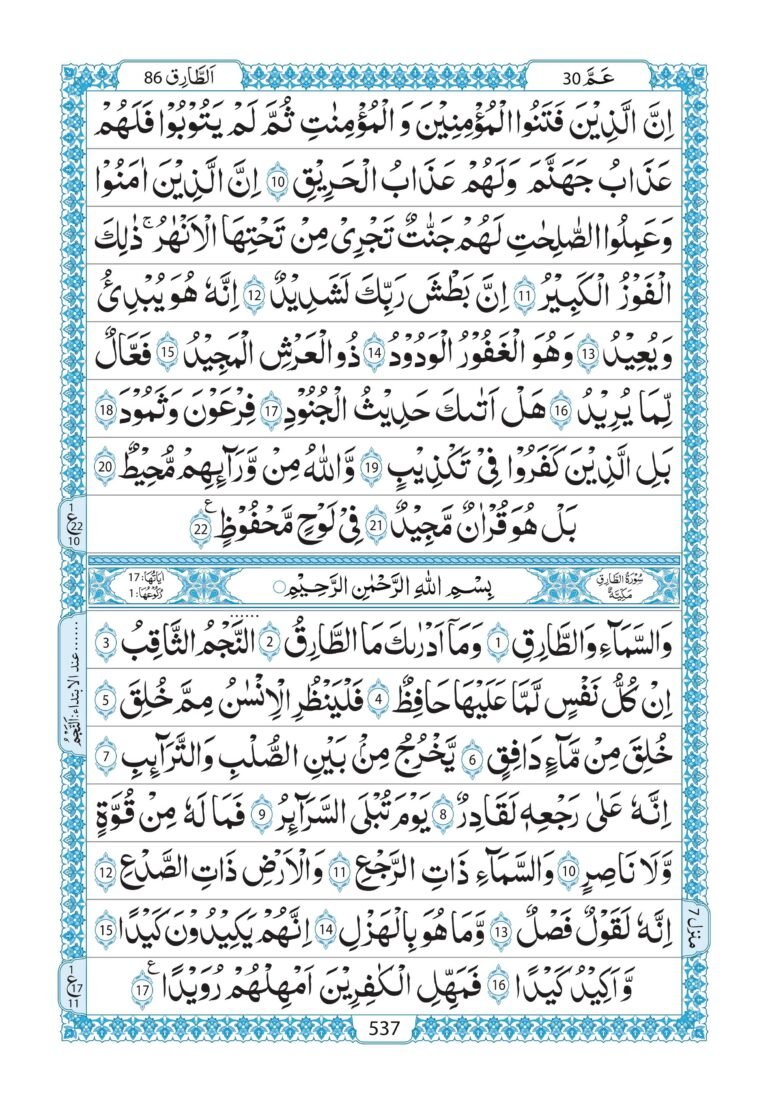 عَمَّ 30
اَلطَّارِق 86
اِنَّ الَّذِيْنَ فَتَنُوا الْمُؤْمِنِيْنَ وَ الْمُؤْمِنٰتِ ثُمَّ لَمْ يَتُوْبُوْا فَلَهُمْ
عَذَابُ جَهَنَّمَ وَلَهُمْ عَذَابُ الْحَرِيْقِ 10 اِنَّ الَّذِيْنَ اٰمَنُوْا
وَعَمِلُوا الصّٰلِحٰتِ لَهُمْ جَنّٰتٌ تَجْرِيْ مِنْ تَحْتِهَا الْاَنْهٰرُ ۚ ذٰلِكَ
الْفَوْزُ الْكَبِيْرُ 11 اِنَّ بَطْشَ رَبِّكَ لَشَدِيْدٌ 12 اِنَّهٗ هُوَ يُبْدِئُ
وَيُعِيْدُ 13 وَهُوَ الْغَفُوْرُ الْوَدُوْدُ 14 ذُو الْعَرْشِ الْمَجِيْدُ 15 فَعَّالٌ
لِّمَا يُرِيْدُ 16 هَلْ اَتٰىكَ حَدِيْثُ الْجُنُوْدِ 17 فِرْعَوْنَ وَثَمُوْدَ 18
بَلِ الَّذِيْنَ كَفَرُوْا فِيْ تَكْذِيْبٍ 19 وَّاللّٰهُ مِنْ وَّرَآئِهِمْ مُّحِيْطٌ 20
بَلْ هُوَ قُرْاٰنٌ مَّجِيْدٌ 21 فِيْ لَوْحٍ مَّحْفُوْظٍ 22 ع
1 ع 22 10
سُوْرَةُ الطَّارِقِ مَكِّيَّةٌ
بِسْمِ اللّٰهِ الرَّحْمٰنِ الرَّحِيْمِ
اٰيَاتُهَا: 17 رُكُوْعُهَا: 1
وَالسَّمَآءِ وَالطَّارِقِ 1 وَمَآ اَدْرٰىكَ مَا الطَّارِقُ 2 النَّجْمُ الثَّاقِبُ 3
اِنْ كُلُّ نَفْسٍ لَّمَّا عَلَيْهَا حَافِظٌ 4 فَلْيَنْظُرِ الْاِنْسٰنُ مِمَّ خُلِقَ 5
خُلِقَ مِنْ مَّآءٍ دَافِقٍ 6 يَّخْرُجُ مِنْۢ بَيْنِ الصُّلْبِ وَالتَّرَآئِبِ 7
اِنَّهٗ عَلٰى رَجْعِهٖ لَقَادِرٌ 8 يَوْمَ تُبْلَى السَّرَآئِرُ 9 فَمَا لَهٗ مِنْ قُوَّةٍ
وَّلَا نَاصِرٍ 10 وَالسَّمَآءِ ذَاتِ الرَّجْعِ 11 وَالْاَرْضِ ذَاتِ الصَّدْعِ 12
اِنَّهٗ لَقَوْلٌ فَصْلٌ 13 وَّمَا هُوَ بِالْهَزْلِ 14 اِنَّهُمْ يَكِيْدُوْنَ كَيْدًا 15
وَّاَكِيْدُ كَيْدًا 16 فَمَهِّلِ الْكٰفِرِيْنَ اَمْهِلْهُمْ رُوَيْدًا 17 ع
عند الابتداء: اَلنَّجْمُ
منزل 7
1 ع 17 11
537